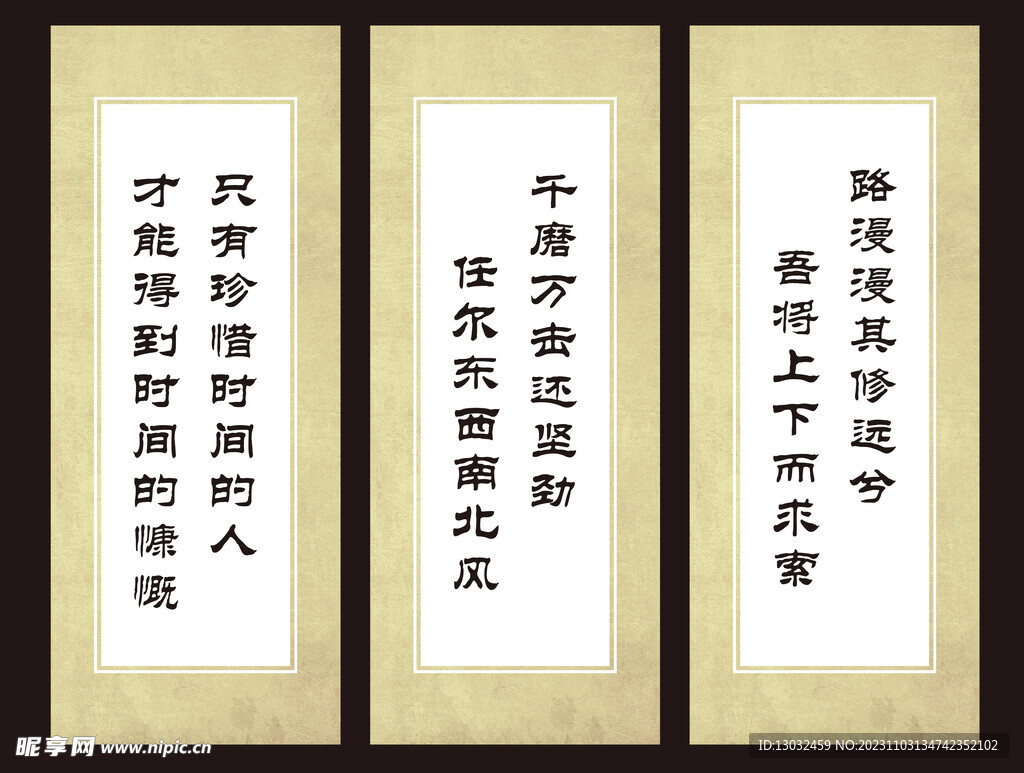 路漫漫其修远兮
吾将上下而求索
千磨万击还坚劲
任尔东西南北风
只有珍惜时间的人
才能得到时间的慷慨
昵享网 www.nipic.cn
ID:13032459 NO:20231103134742352102